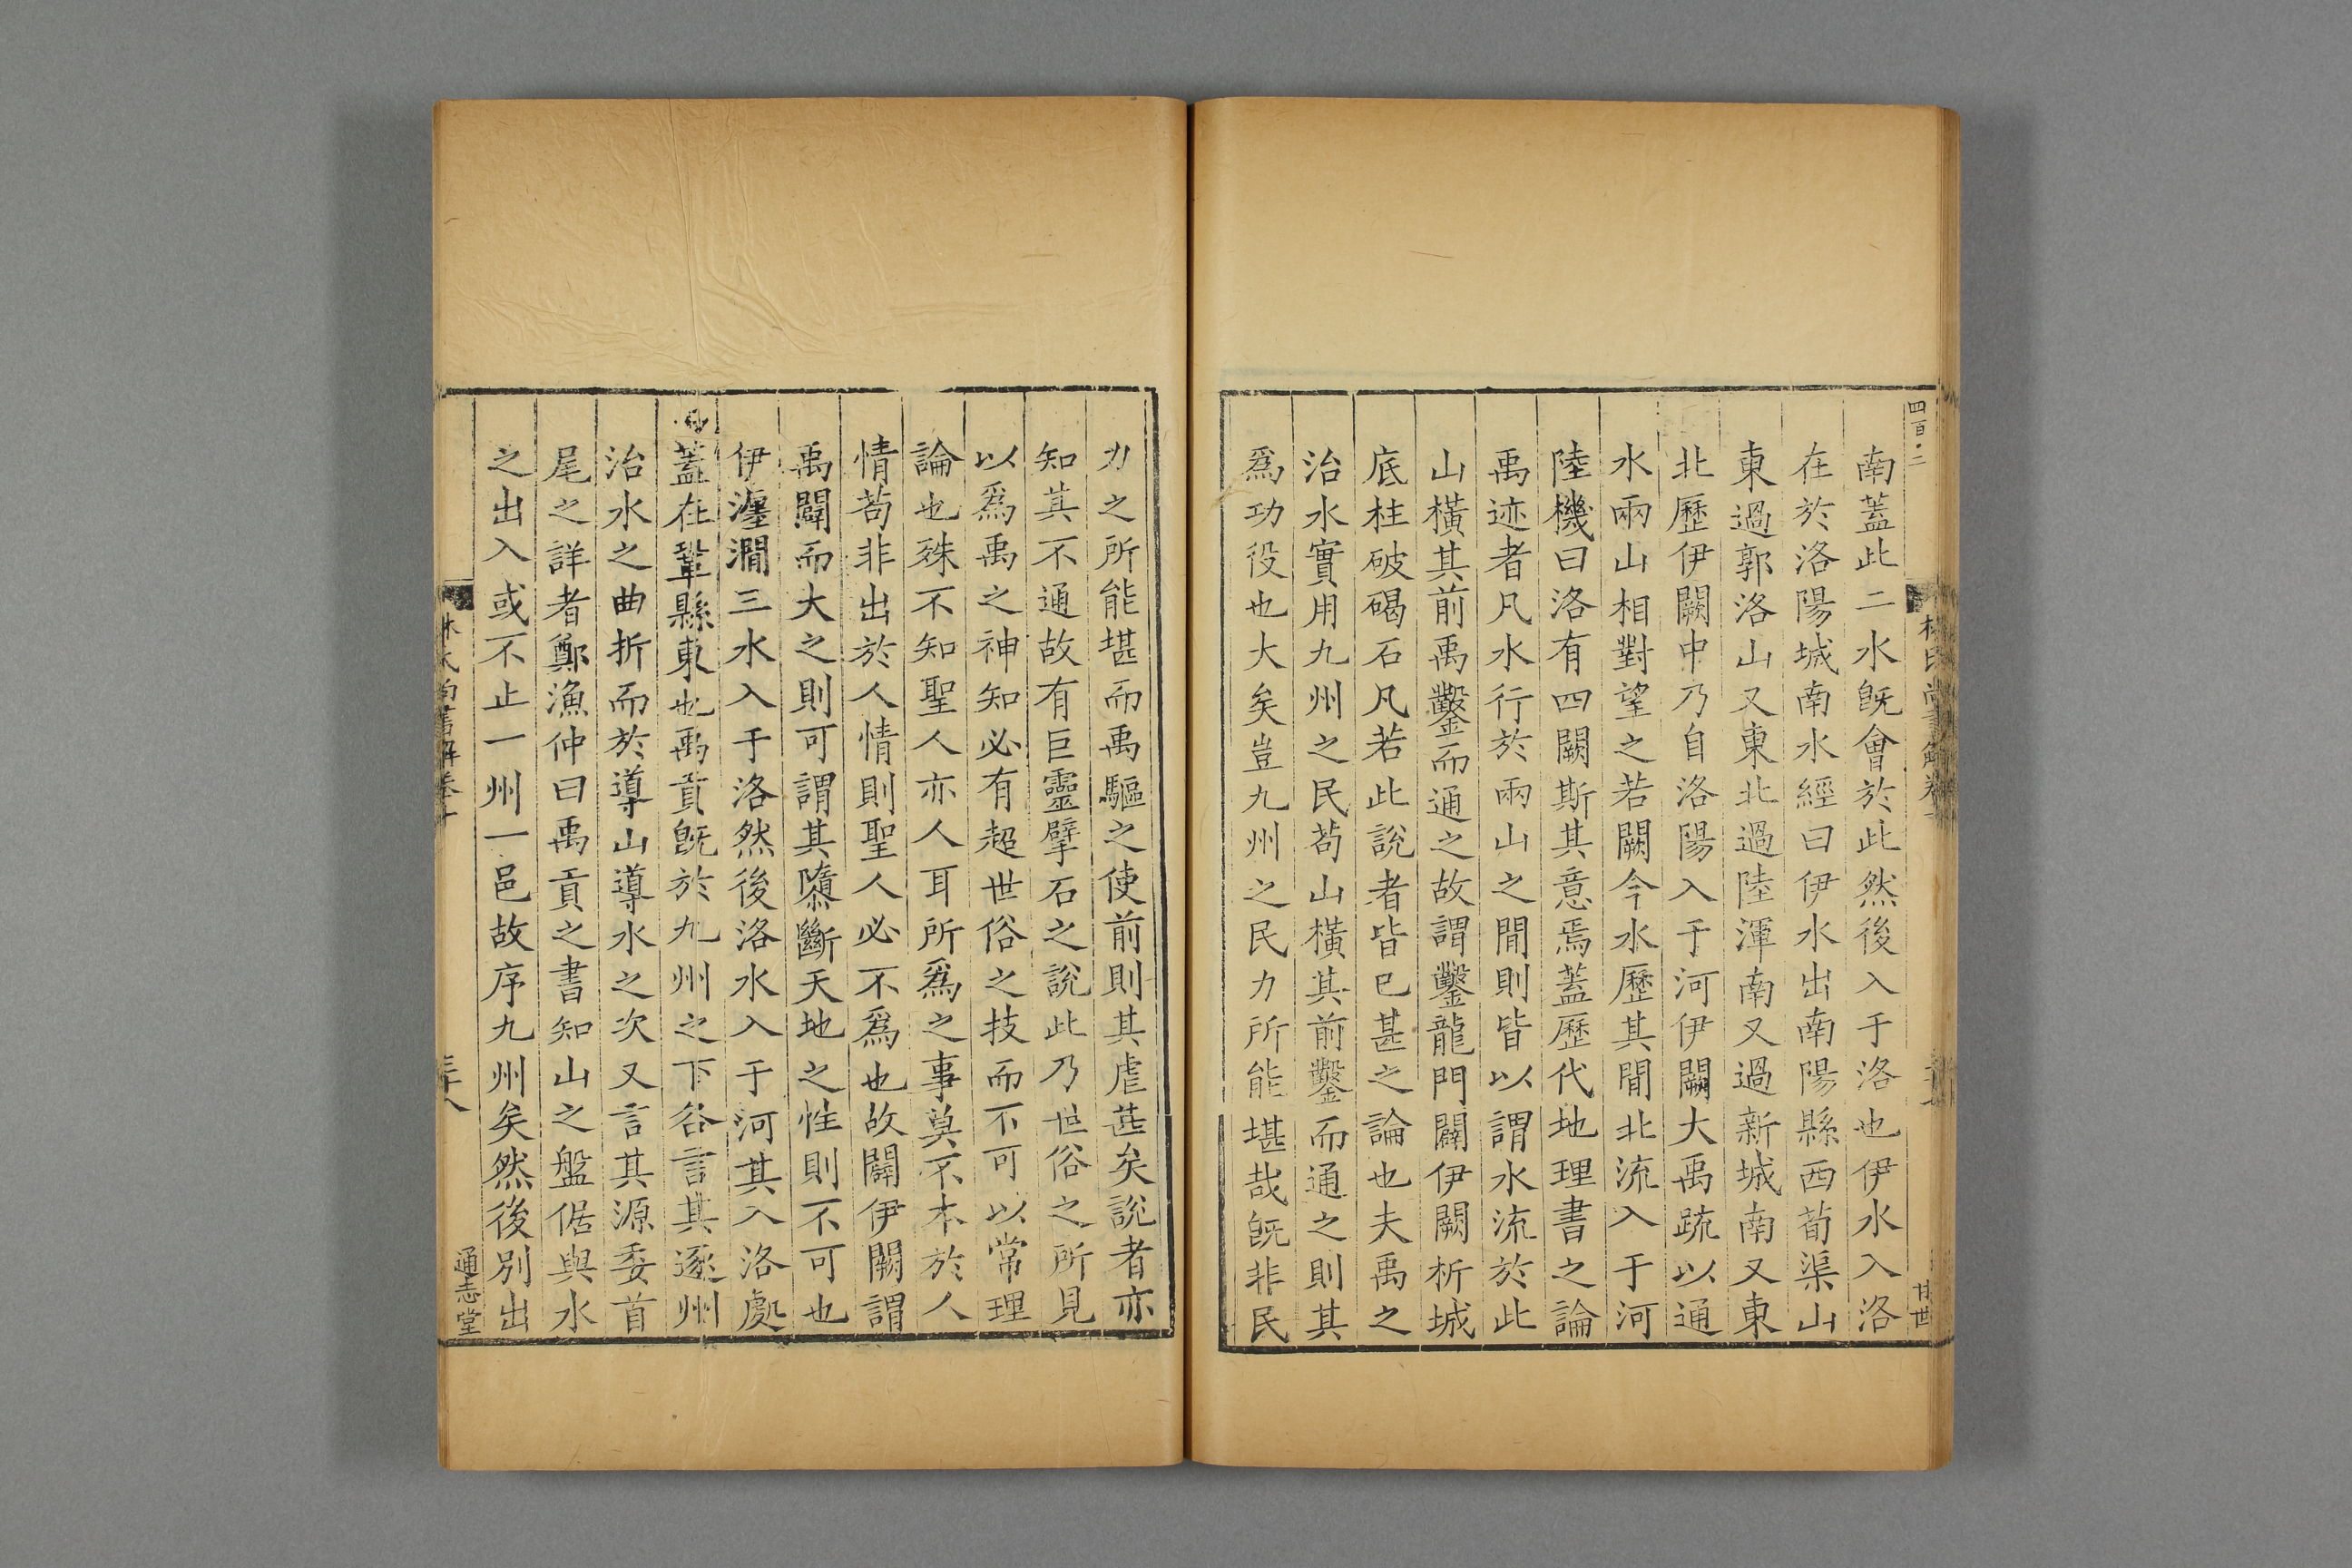 四百·二
南蓋此二水旣會於此然後入于洛也伊水入洛
在於洛陽城南水經曰伊水出南陽縣西荀渠山
東過郭洛山又東北過陸渾南又過新城南又東
北歷伊闕中乃自洛陽入于河伊闕大禹疏以通
水兩山相對望之若闕今水歷其間北流入于河
陸機曰洛有四闕斯其意焉蓋歷代地理書之論
禹迹者凡水行於兩山之間則皆以謂水流於此
山橫其前禹鑿而通之故謂鑿龍門闢伊闕析城
底柱破碣石凡若此說者皆已甚之論也夫禹之
治水實用九州之民茍山橫其前鑿而通之則其
爲功役也大矣豈九州之民力所能堪哉旣非民
力之所能堪而禹驅之使前則其虐甚矣說者亦
知其不通故有巨靈擘石之說此乃世俗之所見
以爲禹之神知必有超世俗之技而不可以常理
論也殊不知聖人亦人耳所爲之事莫不本於人
情茍非出於人情則聖人必不爲也故闢伊闕謂
禹闢而大之則可謂其隳斷天地之性則不可也
伊瀍澗三水入于洛然後洛水入于河其入洛處
蓋在鞏縣東也禹貢旣於九州之下各言其逐州
治水之曲折而於導山導水之次又言其源委首
尾之詳者鄭漁仲曰禹貢之書知山之盤倨與水
之出入或不止一州一邑故序九州矣然後別出
林氏尚書解卷
通志堂